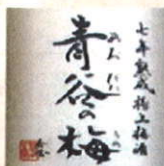 七年熟成極上梅酒
青谷の梅
あおだに
うめ